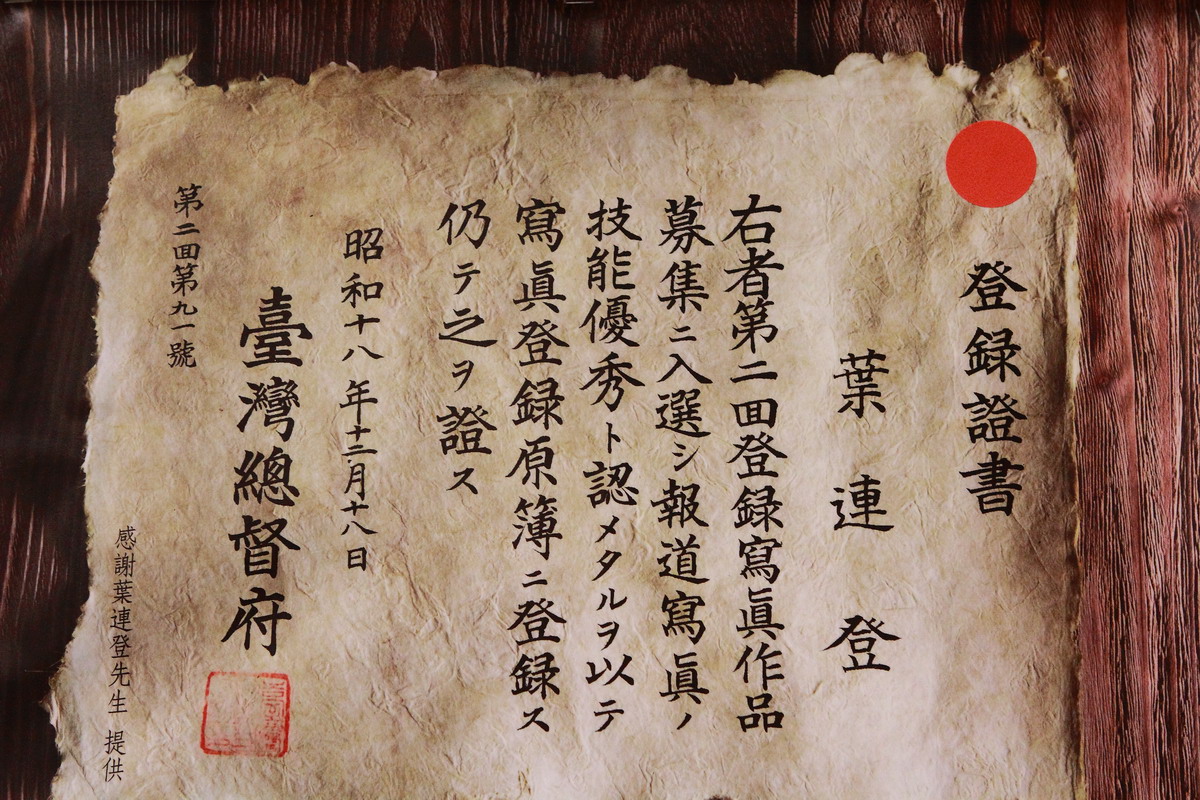 登録證書
葉連登
右者第二回登録寫眞作品
募集ニ入選シ報道寫眞ノ
技能優秀ト認メタルヲ以テ
寫眞登録原簿ニ登録ス
仍テ之ヲ證ス
昭和十八年十二月十八日
臺灣總督府
第二回第九一號
感謝葉連登先生 提供